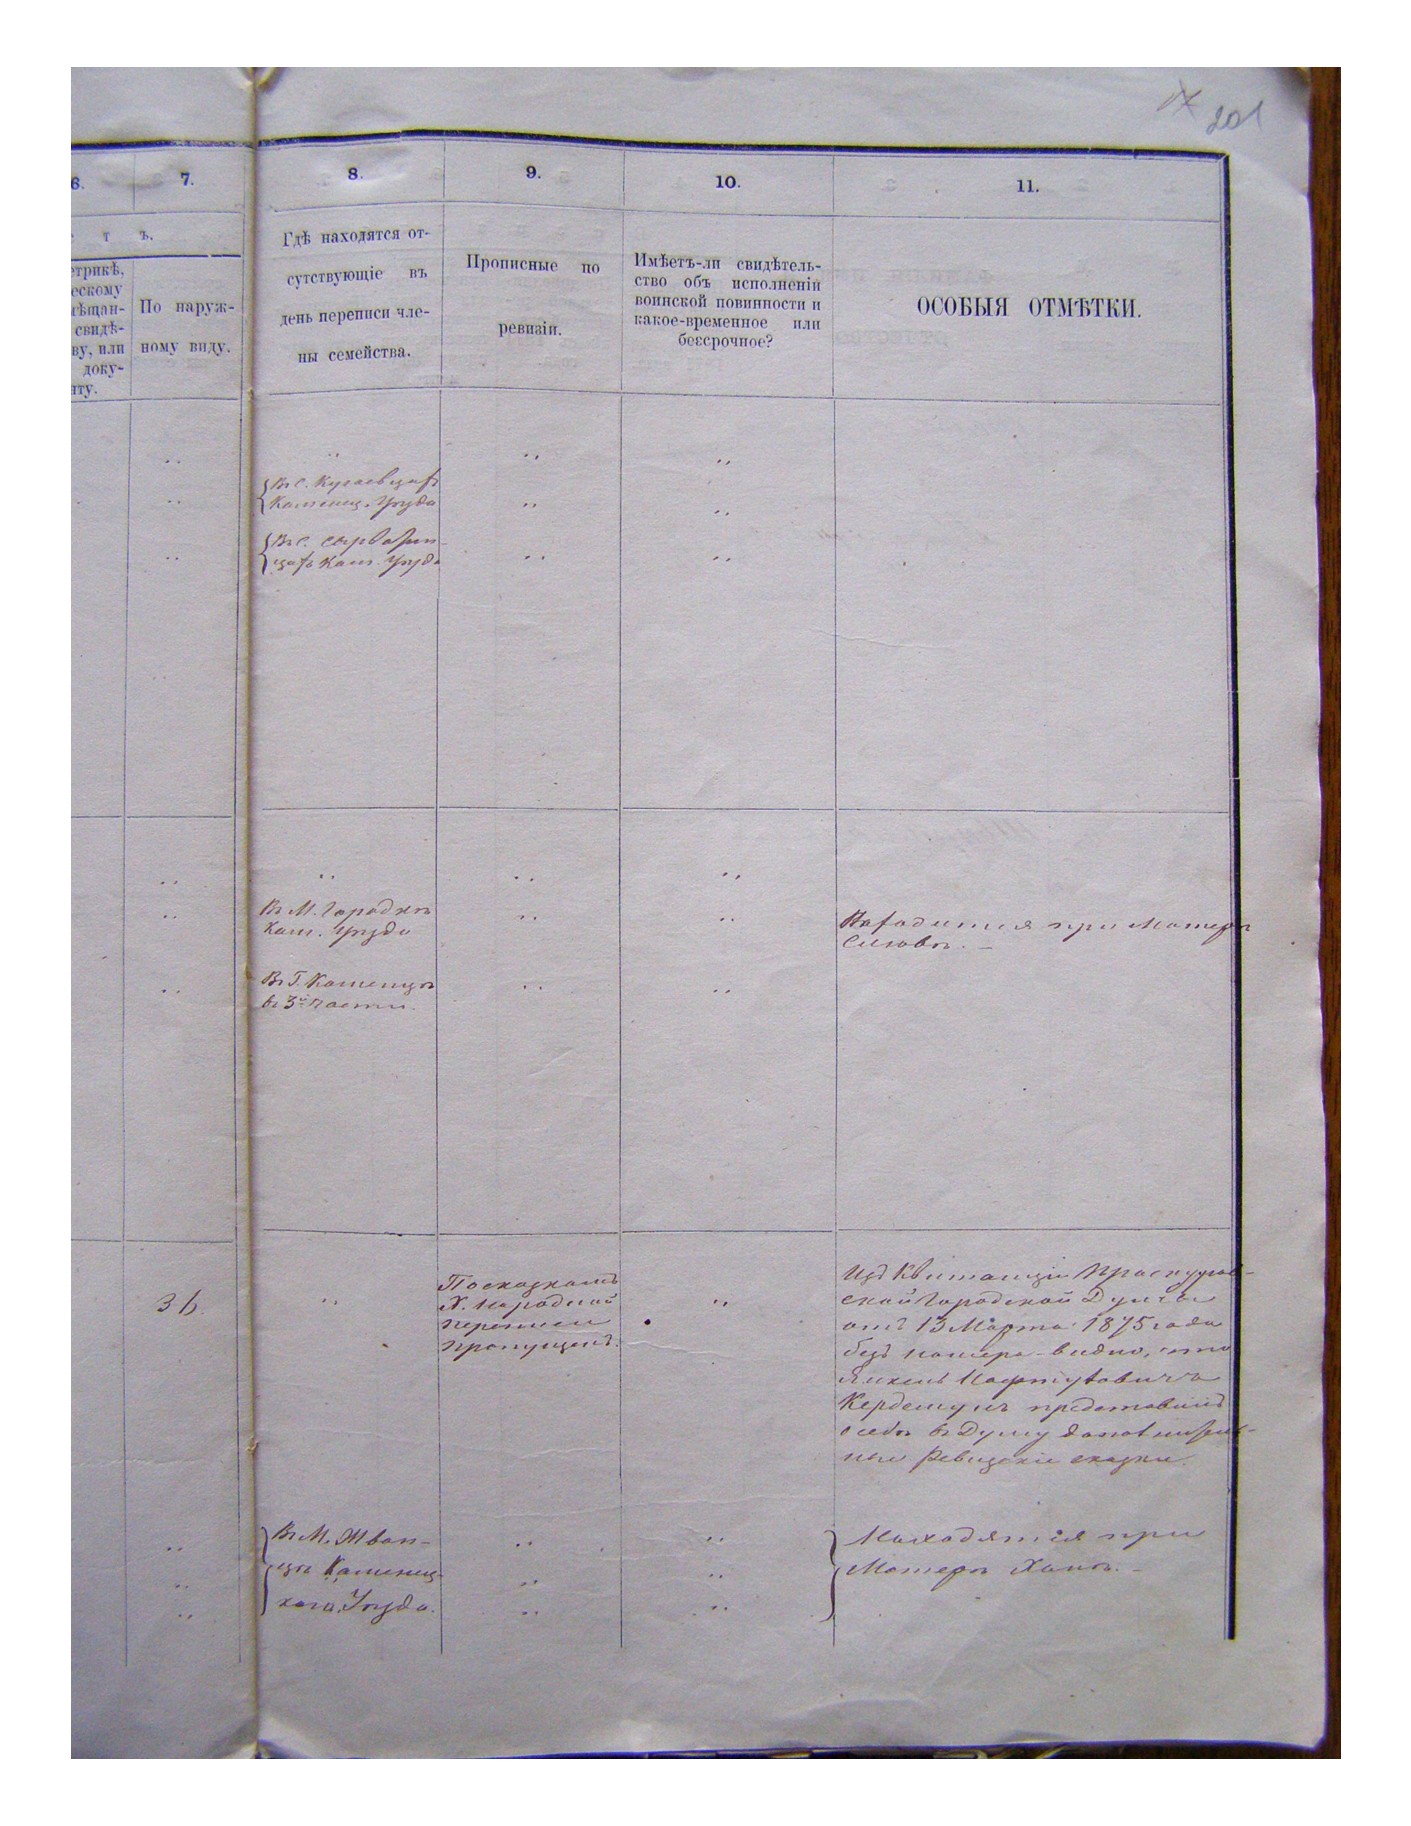 201
6.
7.
8.
9.
10.
11.
с т ъ.
етрикѣ,
ескому
мѣщан-
свидѣ-
ву, или
доку-
нту.
По наруж-
ному виду.
Гдѣ находятся от-
сутствующіе въ
день переписи чле-
ны семейства.
Прописные по
ревизіи.
Имѣетъ-ли свидѣтель-
ство объ исполненіи
воинской повинности и
какое-временное или
безсрочное?
ОСОБЫЯ ОТМѢТКИ.
Въ с. Кугаевцахъ
Каменец. Уѣзда
Въ с.
цахъ Кам. Уѣзда
Въ М. Городкѣ
Кам. Уѣзда
Находится при Матерѣ
Въ Г. Каменцѣ
въ 3й части.
36.
По сказкамъ
X. Народной
переписи
пропущенъ.
Изъ Квитанціи Проскуров-
ской Городской Думы
отъ 13 Марта 1875 года
безъ номера видно, что
представилъ
въ Думу
ныя Ревизскіе сказки.
Въ М. Жван-
цѣ Каменец-
каго, Уѣзда.
Находятся при
Матерѣ Ханѣ.